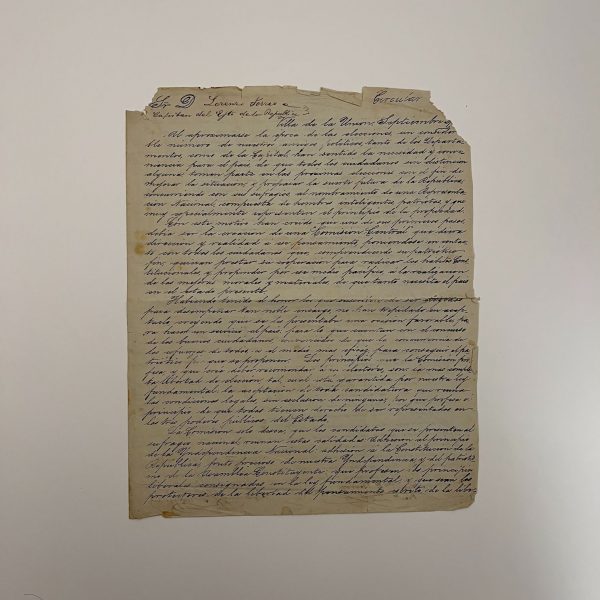 Sr D Lorenzo Circular
Capitan del Egto de la República
Villa de la Union, Septiembre 9
Al aproximarse la época de las elecciones, un considera
ble número de nuestros amigos políticos, tanto de los Departa
mentos, como de la Capital, han sentido la necesidad y conve
niencia para el país de que todos los ciudadanos sin distincion
alguna tomen parte en las proximas elecciones con el fin de
mejorar la situacion, y preparar la suerte futura de la República,
concurriendo con sus sufragios al nombramiento de una Representa
cion Nacional, compuesta de hombres inteligentes, patriotas, y que
muy especialmente representen el principio de la propiedad.
Con este motivo han creido que uno de sus primeros pasos,
debia ser la creacion de una "Comision Central" que diera
direccion y realidad a ese pensamiento, poniendose en contac
to con todos los ciudadanos que, comprendiendo su patriotico
fin, quieran prestar su cooperacion para radicar los habitos Cons
titucionales y propender por ese medio pacifico, á la realizacion
de las mejoras morales y materiales, de que tanto necesita el país
en el estado presente.
Habiendo tenido el honor los que suscriben, de ser
para desempeñar tan noble encargo, no han trepidado en acep
tarlo creyendo que se les presentaba una ocasion favorable pa
ra hacer un servicio al país, para lo que cuentan con el concurso
de los buenos ciudadanos, convencidos de que la concurrencia de
los esfuerzos de todos, es el medio mas eficaz para conseguir el pa
triótico fin que se proponen. Los principios que la Comision pro
fesa, y que cree deber recomendar a los electores, son la mas comple
ta libertad de eleccion tal cual está garantida por nuestra ley
fundamental, la aceptacion de toda candidatura que reuna
las condiciones legales, sin esclusion de ninguna, por que profesa el
principio de que todas tienen derecho de ser representados en
los tres poderes publicos del Estado.
La Comision solo desea, que los candidatos que se presenten al
sufragio nacional reunan estas calidades: Adhesion al principio
de la Independencia Nacional, adhesion a la Constitucion de la
República, fruto precioso de nuestra Independencia y del patriotis
mo de la Asamblea Constituyente; que profesen los principios
liberales consignados en la ley fundamental, y que sean los
protectores de la libertad del pensamiento escrito, de la liber